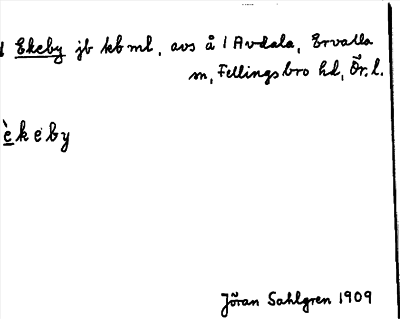 Ekeby jb kbml, avs å 1 Avdala, Ervalla
sn, Fellingsbro hd, Ör. l.
èkeby
Jöran Sahlgren 1909